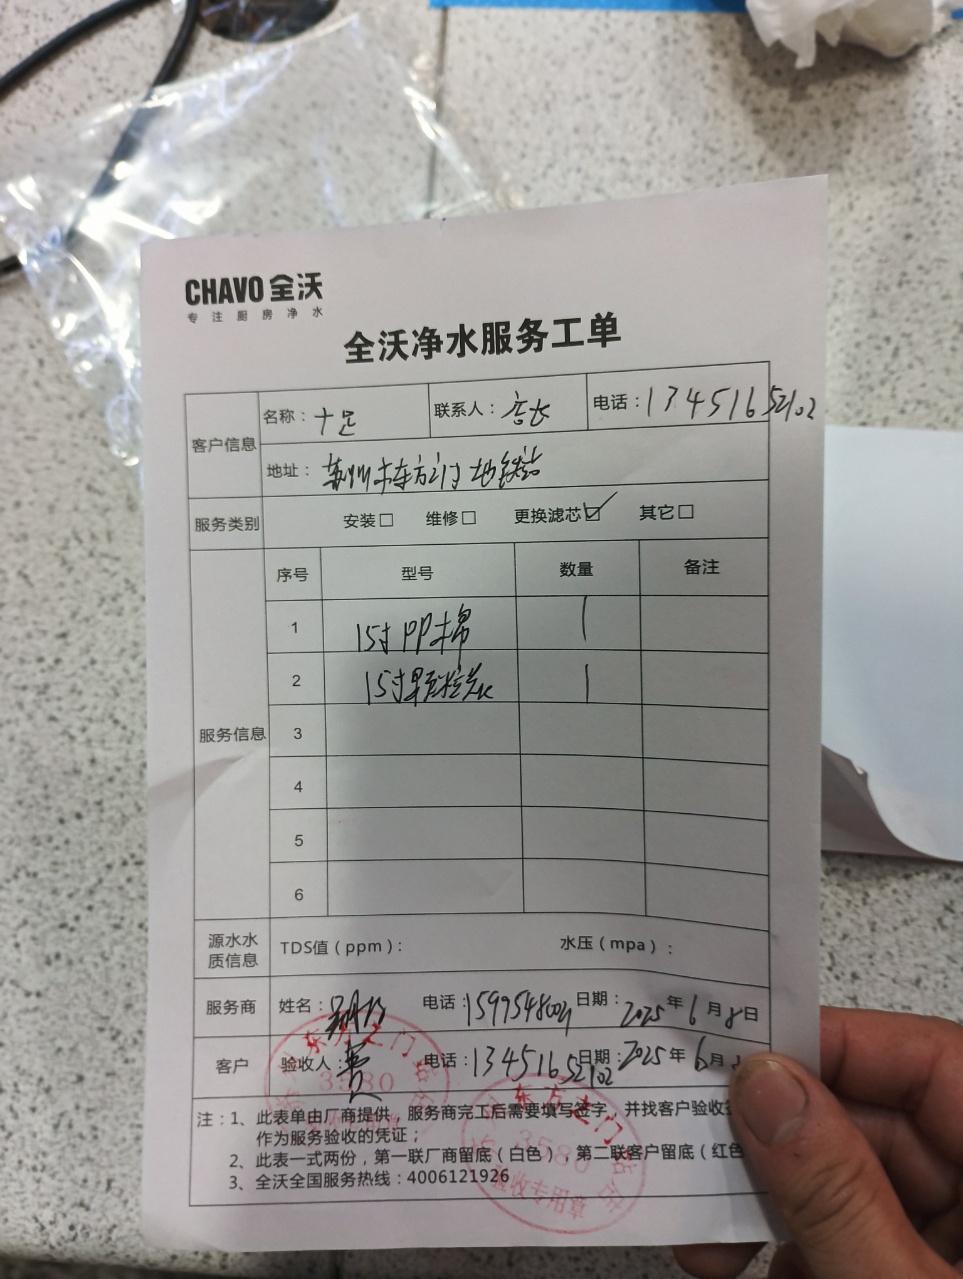 CHAVO 全沃
专注厨房净水
全沃净水服务工单
客户信息
名称：十足 联系人：店长 电话：13451652102
地址：苏州市东方之门地铁站
服务类别 安装□ 维修□ 更换滤芯☑ 其它□
服务信息
序号 型号 数量 备注
1 15寸PP棉 1
2 15寸颗粒炭 1
3
4
5
6
源水水质信息 TDS值（ppm）： 水压（mpa）：
服务商 姓名： 电话： 日期：2025年6月8日
客户 验收人： 电话：13451652102 日期：2025年6月
注：1、此表单由厂商提供，服务商完工后需要填写签字，并找客户验收
作为服务验收的凭证；
2、此表一式两份，第一联厂商留底（白色），第二联客户留底（红色
3、全沃全国服务热线：4006121926
东方之门
3580
东方之门
3580
验收专用章